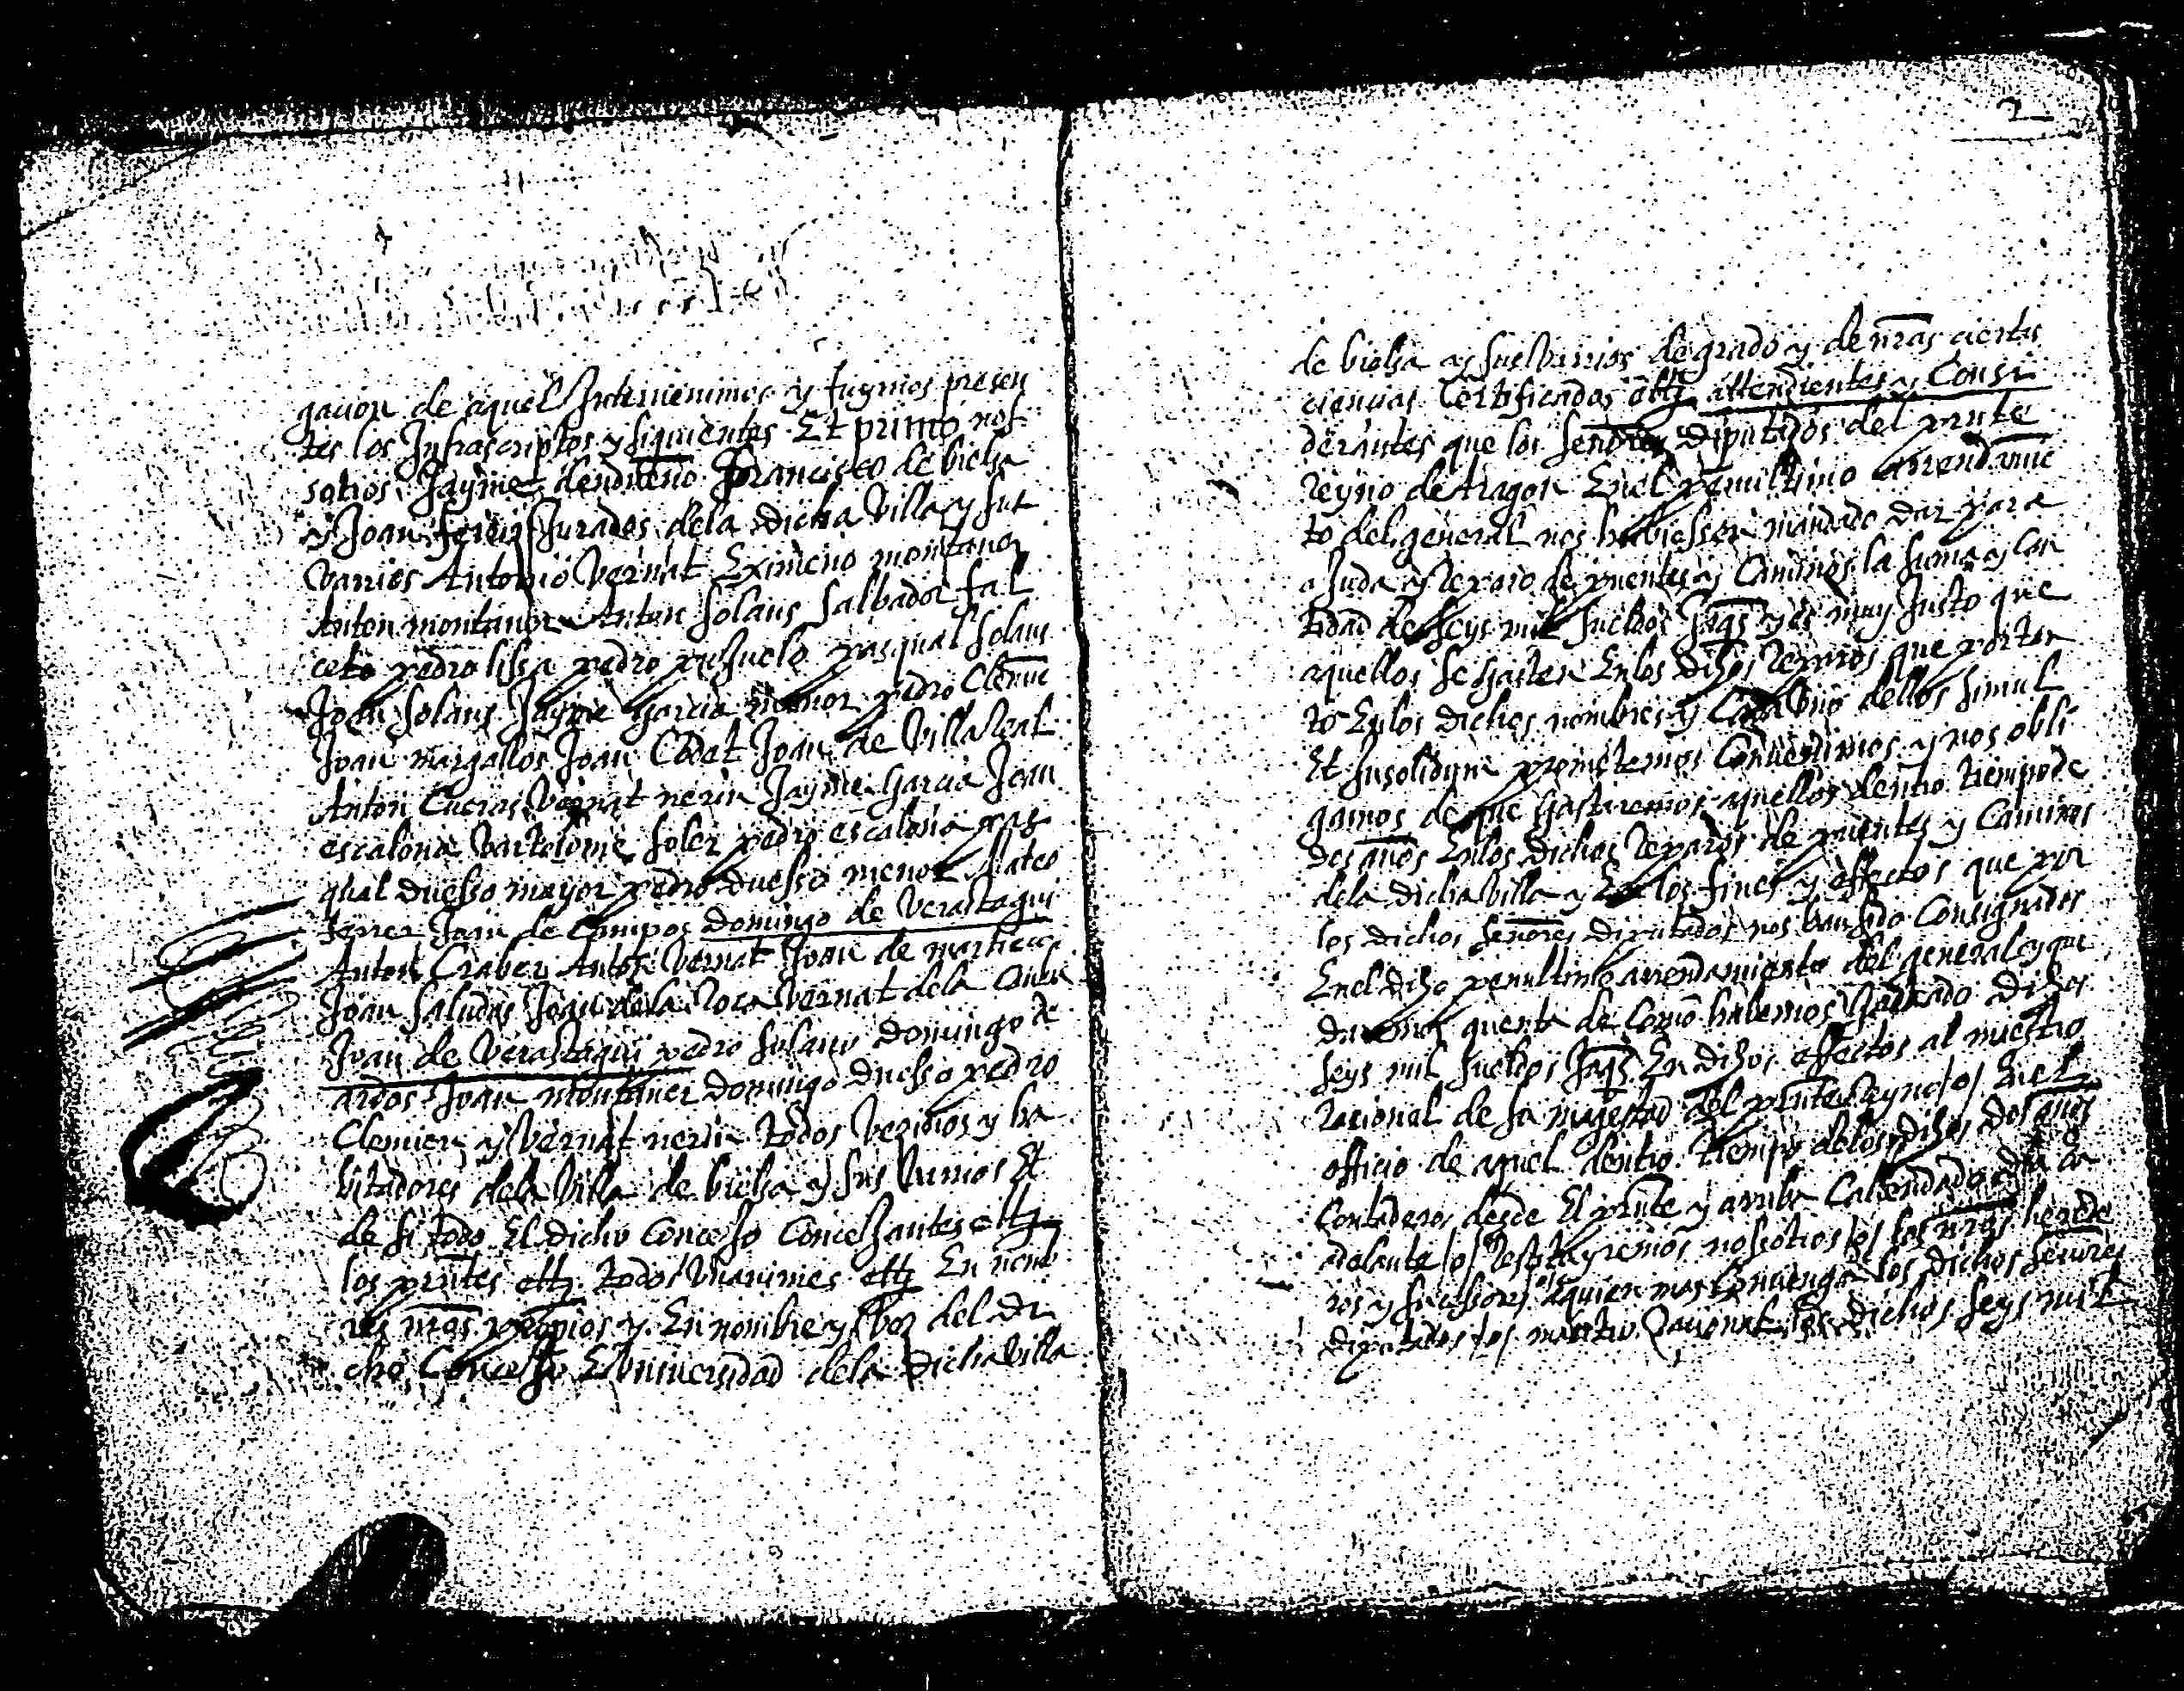 gacion de aquel Interuenimos y fuymos presen
tes los Infrascriptos y siguientes Et primo nos
otros Jayme Francisco de bielsa
y Joan Jurados dela dicha Villa y sus
varrios Antonio Vernat Eximeno montaner
Anton montaner Anton solans salbador fal
ceto pedro lissa pedro puzuelo pasqual solans
Joan solans Jayme Garcia menor pedro
Joan margallos Joan Cadet Joan de Villa Real
Anton Cueras Vernat nerin Jayme Garcia Joan
escalona Bartolome soler pedro escalona pas
qual duesso mayor pedro duesso menor Mateo
ferrer Joan de Campos domingo de Verastagui
Anton Craber Anton Vernat Joan de
Joan saludas Joan dela Roca Vernat dela
Joan de Verastagui pedro solans domingo de
ardos Joan montaner domingo duesso pedro
Clemier y Vernat nerin todos vezinos y ha
bitadores dela Villa de bielsa y sus varrios Et
de si todo El dicho Concesso Concejantes ettz
los pntes ettz todos Vnanimes ettz En nomb
res nros propios y En nombre y boz del di
cho Concesso E Vniuersidad dela dicha villa
2
de bielsa y sus Varrios de grado y de nras ciertas
ciencias Certificados ettz attendientes y Consi
derantes que los señores Diputados del pnte
Reyno de Aragon En el penultimo arrendamie
to del general nos hubiessen mandado dar para
ajuda y Reparo de puentes y Caminos la suma y can
tidad de seys mil sueldos Jaqs y es muy Justo que
aquellos se gasten En los dichos Reparos que por tan
to En los dichos nombres y Cada Vno dellos simul
Et Insolidum prometemos Conuenimos y nos obli
gamos de que gastaremos aquellos dentro tiempo de
dos años En los dichos Reparos de puentes y Caminos
dela dicha Villa y En los fines y effectos que por
los dichos señores diputados nos han sido Consignados
En el dicho penultimo arrendamiento del general y que
daremos quenta de Como habemos gastado dichos
seys mil sueldos Jaqs En dichos effectos al maestro
Racional de su magestad del pnte Reyno En el
officio de aquel dentro tiempo delos dichos dos años
Contaderos desde El pnte y arriba Calendado dia
adelante Restituyremos nosotros los nros herede
ros y sucessores a quien mas Conuenga los dichos señores
diputados maestro Racional los dichos seys mil